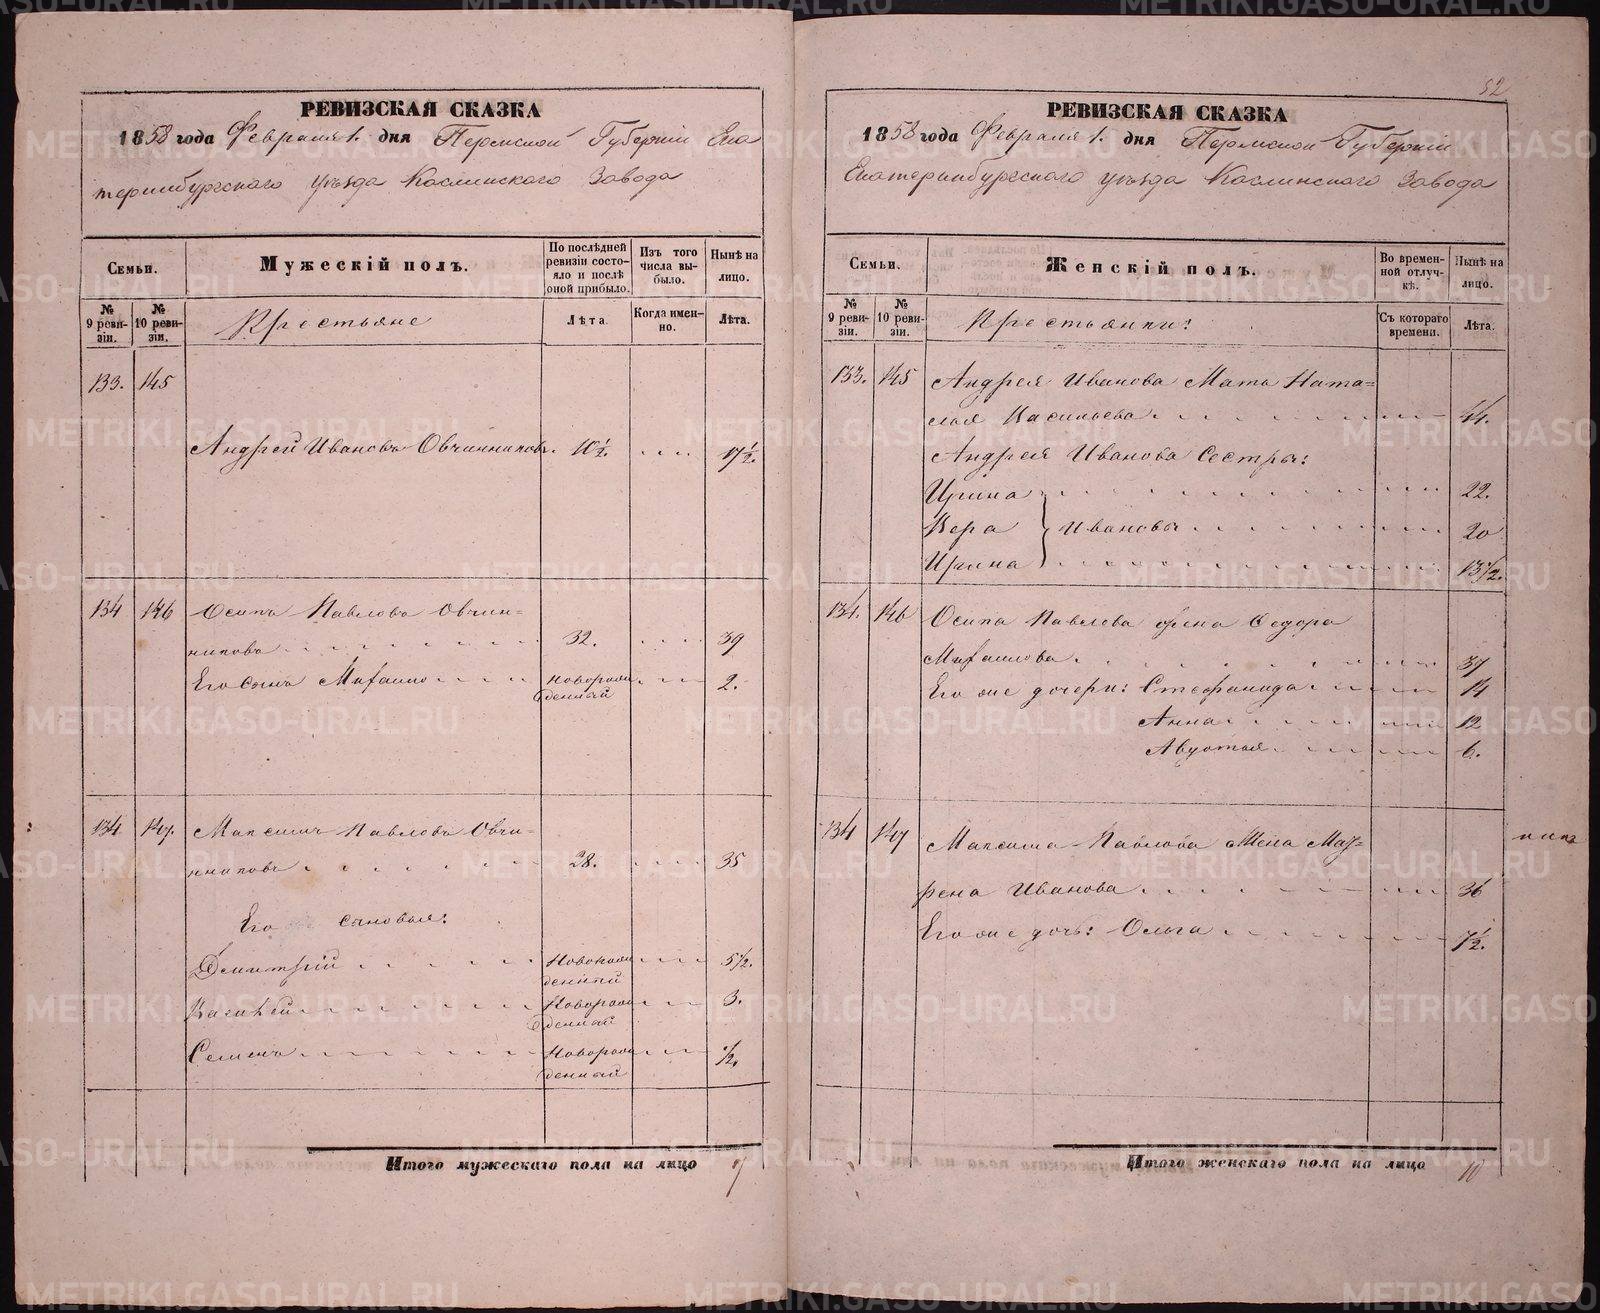 РЕВИЗСКАЯ СКАЗКА
1858 года Февраля 1. дня Пермской Губерніи Ека
теринбургскаго уѣзда Каслинскаго Завода
Семьи.
Мужескій полъ.
По послѣдней ревизіи состояло и послѣ оной прибыло.
Изъ того числа выбыло.
Нынѣ на лицо.
№ 9 ревизіи.
№ 10 ревизіи.
Крестьяне
Лѣта.
Когда именно.
Лѣта.
133. 145
Андрей Ивановъ Овчинниковъ. 10½. 17½.
134 146 Осипъ Павловъ Овчин=
никовъ 32. 39
Его сынъ Михаило новорож 2.
денный
134 147. Максимъ Павловъ Овчи-
нниковъ 28. 35
Его сыновья:
Дмитрій Новорож 5½.
денный
Новорож 3.
денный
Семенъ Новорож ½.
денный
Итого мужескаго пола на лицо 7
52
РЕВИЗСКАЯ СКАЗКА
1858 года Февраля 1. дня Пермской Губерніи
Екатеринбургскаго уѣзда Каслинскаго Завода
Семьи.
Женскій полъ.
Во временной отлучкѣ.
Нынѣ на лицо.
№ 9 ревизіи.
№ 10 ревизіи.
Крестьянки:
Съ котораго времени.
Лѣта.
133. 145 Андрея Иванова Мать Ната=
лья Васильева 44.
Андрея Иванова Сестры:
Ирина 22.
Вера } Ивановы 20
Ирина 13½.
134. 146 Осипа Павлова жена Федора
Михаилова 37
Его же дочери: Стефанида 14
Анна 12
Авдотья 6.
134 147 Максима Павлова Жена Мав-
рена Иванова 36
Его же дочь: Ольга 7½.
Итого женскаго пола на лицо 10
METRIKI.GASO-URAL.RU